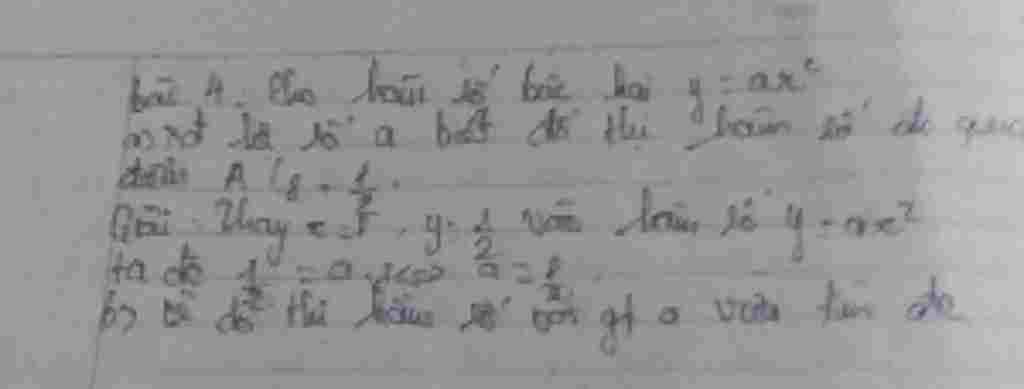 bài 4. Cho hàm số bậc hai y = ax²
a) xđ hệ số a biết đồ thị hàm số đó qua
điểm A (1, 1/2.
Giải: Thay x = 1, y = 1/2 vào hàm số y = ax²
ta đc 1/2 = a.1 <=> a = 1/2
b) vẽ đồ thị hàm số với gt a vừa tìm đc